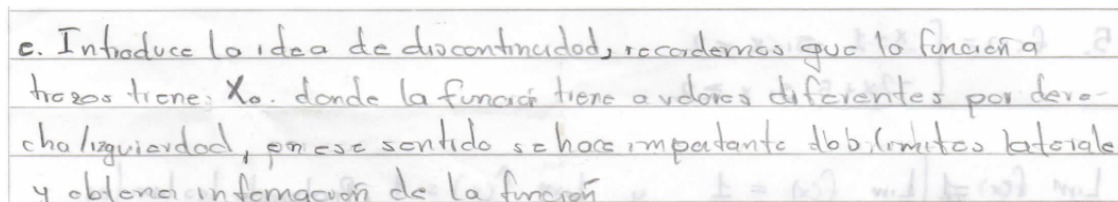 e. Introduce la idea de discontinuidad, recordemos que la función a
trozos tiene: X₀. donde la función tiene a valores diferentes por dere-
cha/izquierdad, en ese sentido se hace importante limites laterale
y obtener información de la función